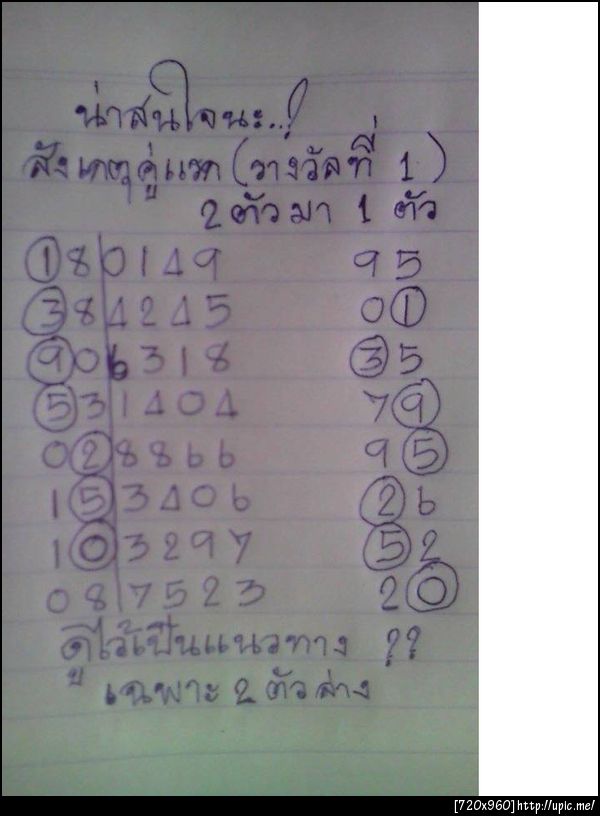 น่าสนใจนะ..!
สังเกตุคู่แรก (รางวัลที่ 1)
2 ตัวมา 1 ตัว
180149 95
384245 01
906318 35
531404 79
028866 95
153406 26
103297 52
087523 20
ดูไว้เป็นแนวทาง ??
เฉพาะ 2 ตัวล่าง
[720x960]http://upic.me/